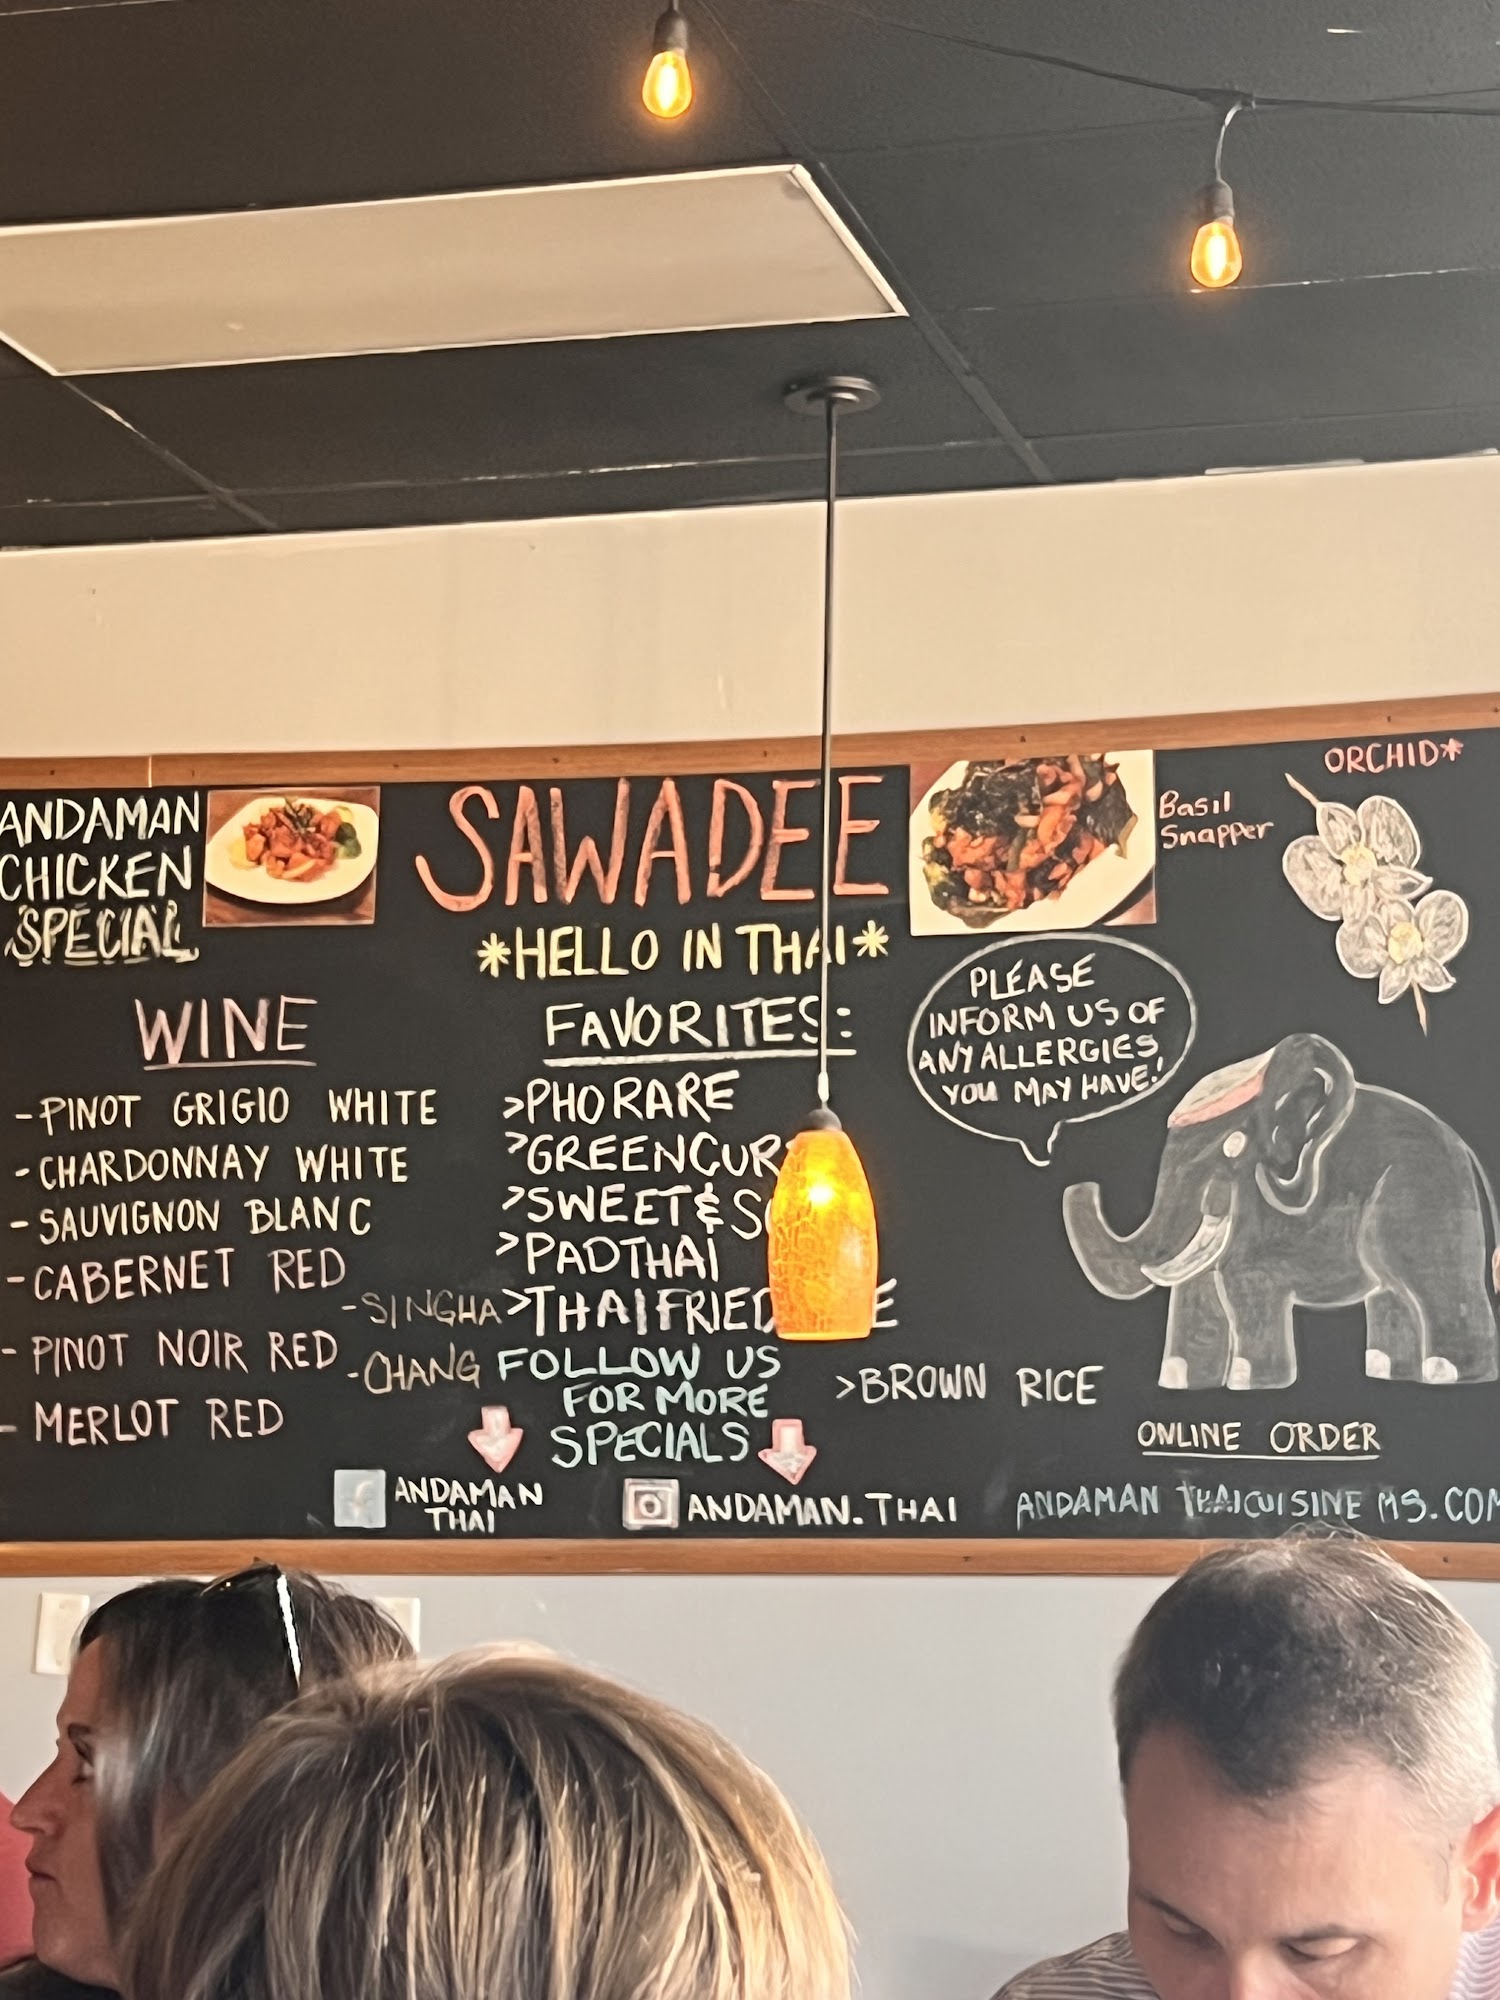 ANDAMAN
CHICKEN
SPECIAL
SAWADEE
*HELLO IN THAI*
Basil
Snapper
ORCHID*
WINE
-PINOT GRIGIO WHITE
-CHARDONNAY WHITE
-SAUVIGNON BLANC
-CABERNET RED
-PINOT NOIR RED
-MERLOT RED
-SINGHA
-CHANG
FAVORITES:
>PHO RARE
>GREEN
>SWEET &
>PAD THAI
>THAI FRIED
>BROWN RICE
FOLLOW US
FOR MORE
SPECIALS
ANDAMAN
THAI
ANDAMAN.THAI
PLEASE
INFORM US OF
ANY ALLERGIES
YOU MAY HAVE!
ONLINE ORDER
ANDAMAN THAICUISINE MS.COM